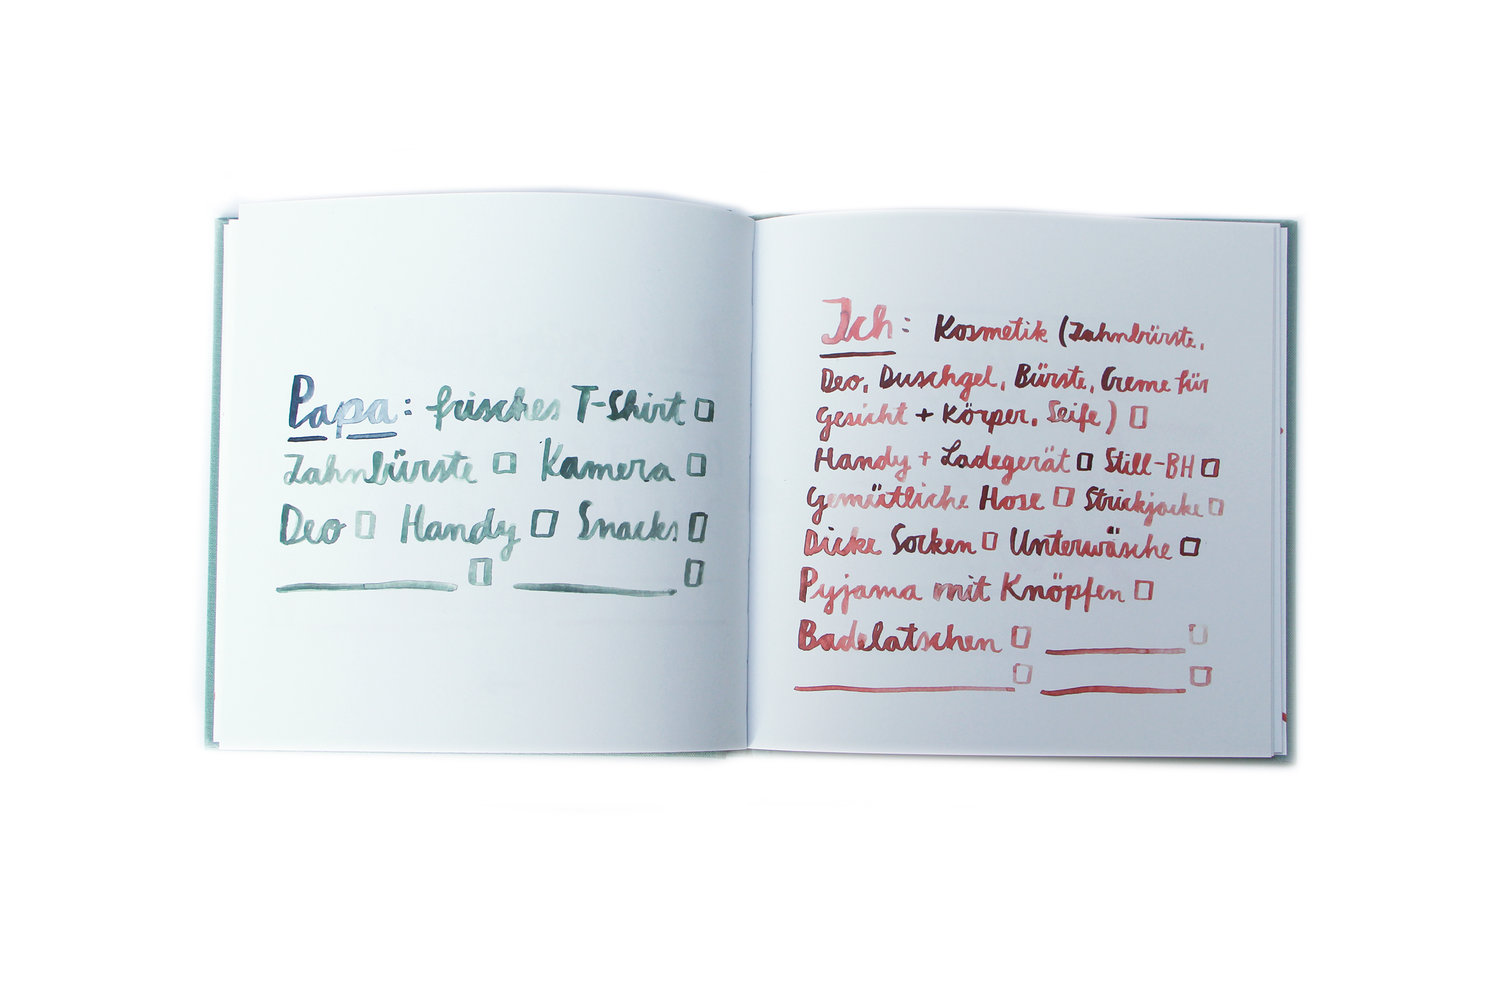 Papa: frisches T-Shirt
Zahnbürste Kamera
Deo Handy Snacks
Ich: Kosmetik (Zahnbürste,
Deo, Duschgel, Bürste, Creme für
Gesicht + Körper, Seife)
Handy + Ladegerät Still-BH
Gemütliche Hose Strickjacke
Dicke Socken Unterwäsche
Pyjama mit Knöpfen
Badelatschen